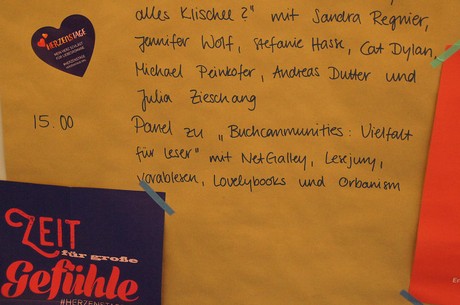 alles Klischee?" mit Sandra Regnier,
Jennifer Wolf, Stefanie Hasse, Cat Dylan,
Michael Peinkofer, Andreas Dutter und
Julia Zieschang
15.00
Panel zu „Buchcommunities: Vielfalt
für Leser" mit NetGalley, Lesejury,
vorablesen, Lovelybooks und Orbanism
HERZENSTAGE
ZEIT
für große
Gefühle
#HERZENSTAGE